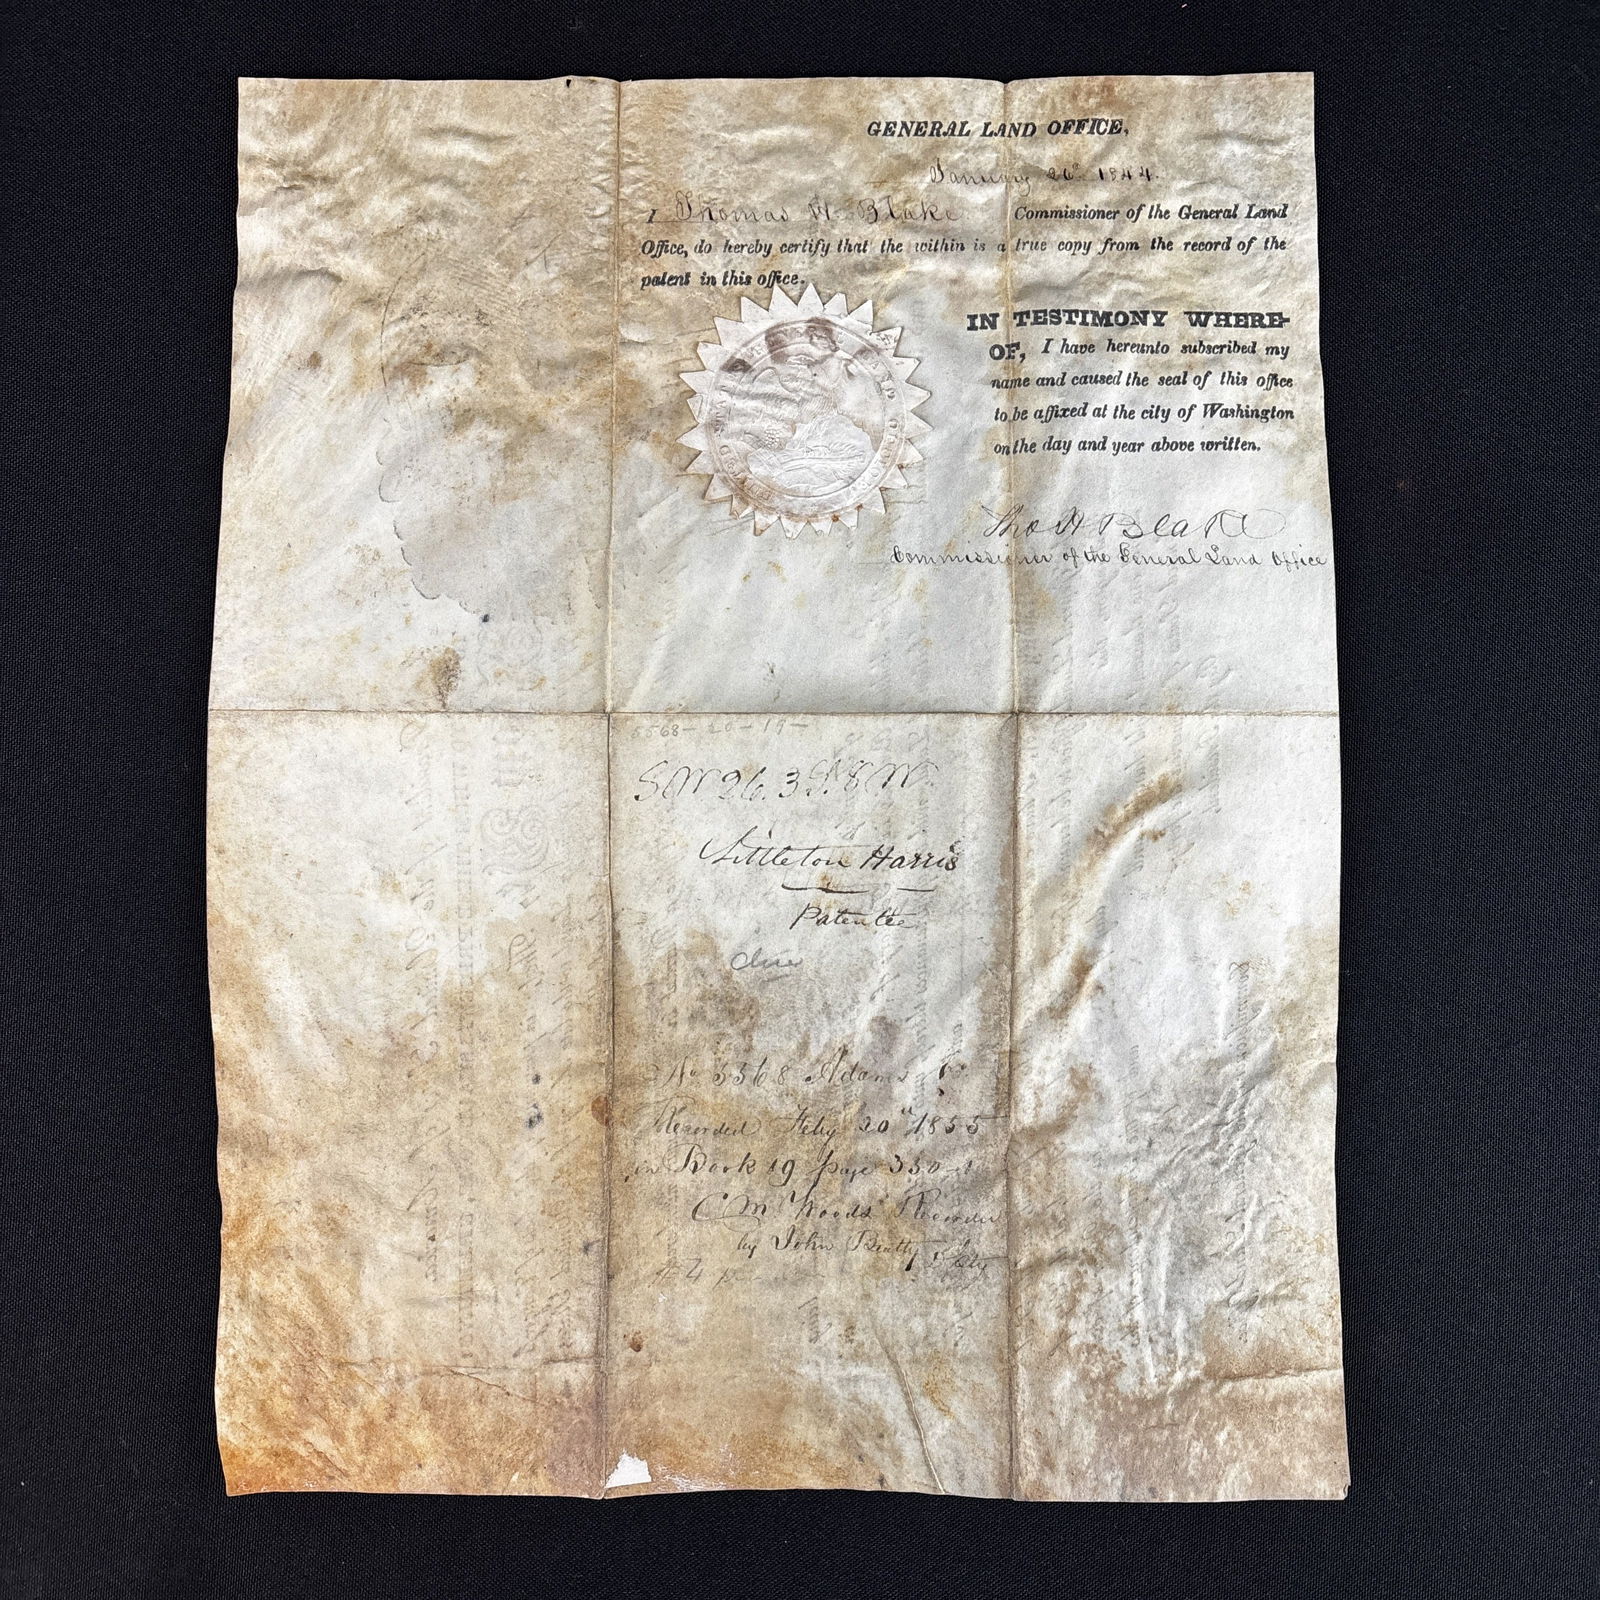 GENERAL LAND OFFICE,
January 26th 1844.
I Thomas H. Blake Commissioner of the General Land
Office, do hereby certify that the within is a true copy from the record of the
patent in this office.
IN TESTIMONY WHERE-
OF, I have hereunto subscribed my
name and caused the seal of this office
to be affixed at the city of Washington
on the day and year above written.
Tho H Blake
Commissioner of the General Land Office
5568- 20 - 19 -
SW 26. 3 S. 8 W.
Littleton Harris
Patentee
No 5568 Adams Co
Recorded Feby 20th 1855
in Book 19 page 350
C M Woods Recorder
by John Beatty Dpty